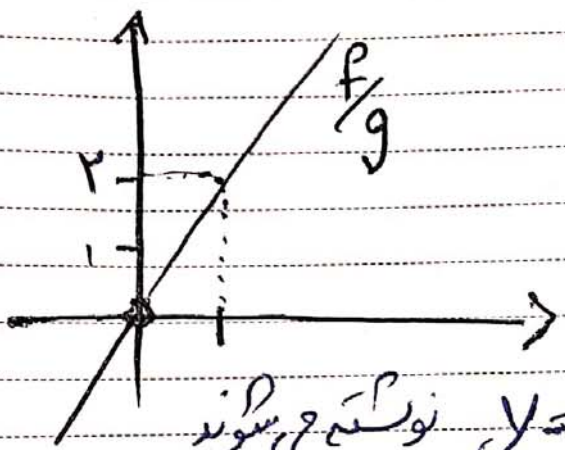 f/g
۲
۱
نوشته می شوند